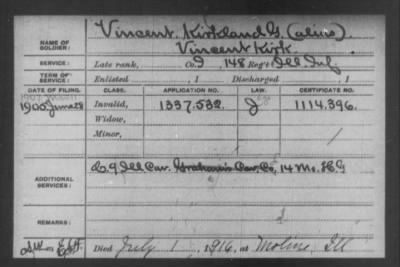 NAME OF SOLDIER: Vincent, Kirkland G. (alias).
Vincent Kirk.
SERVICE: Late rank, Co. I, 148 Reg't Ill Inf.
TERM OF SERVICE: Enlisted , 1 Discharged , 1
DATE OF FILING. CLASS. APPLICATION NO. LAW. CERTIFICATE NO.
1900 June 28 Invalid, 1337.532. J 1114.396.
Widow,
Minor,
ADDITIONAL SERVICES: 9 Ill Cav. Graham's Cav. Co, 14 Mo. H G
REMARKS:
Died July 1, 1916, at Moline, Ill